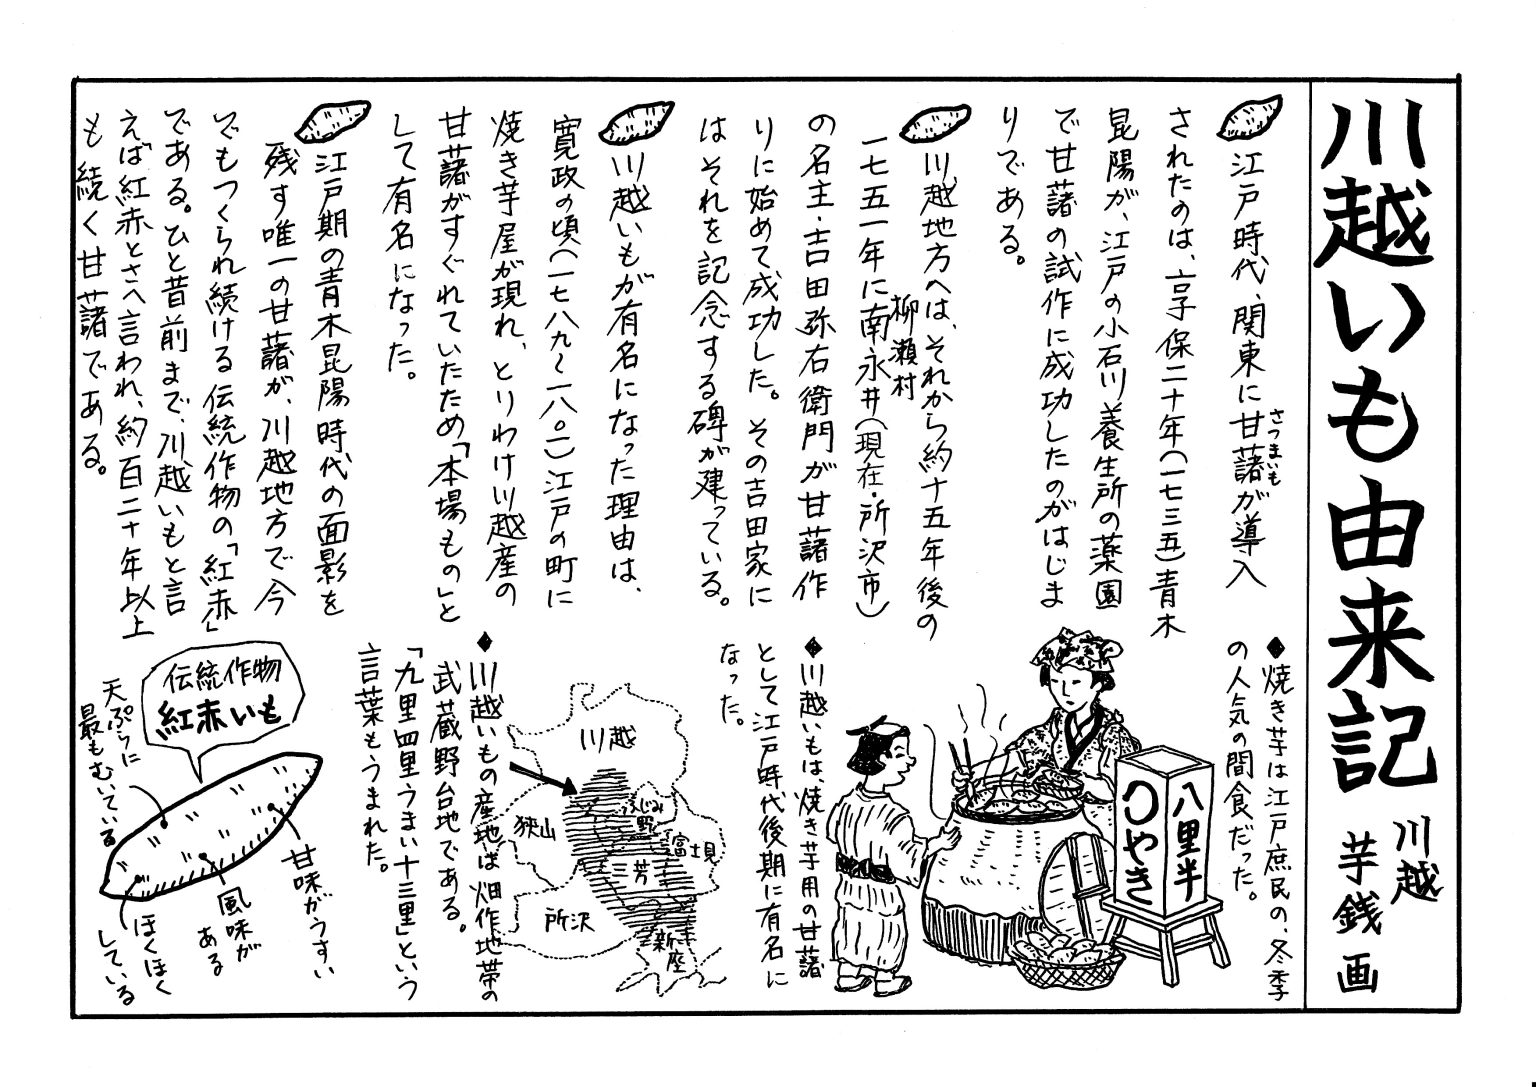 川越いも由来記
川越 芋銭 画
江戸時代、関東に甘藷が導入
さつまいも
されたのは、享保二十年(一七三五)青木
昆陽が、江戸の小石川養生所の薬園
で甘藷の試作に成功したのがはじま
りである。
川越地方へは、それから約十五年後の
柳瀬村
一七五一年に南永井(現在・所沢市)
の名主・吉田弥右衛門が甘藷作
りに始めて成功した。その吉田家に
はそれを記念する碑が建っている。
川越いもが有名になった理由は、
寛政の頃(一七八九〜一八〇一)江戸の町に
焼き芋屋が現れ、とりわけ川越産の
甘藷がすぐれていたため「本場もの」と
して有名になった。
江戸期の青木昆陽時代の面影を
残す唯一の甘藷が、川越地方で今
でもつくられ続ける伝統作物の「紅赤」
である。ひと昔前まで、川越いもと言
えば紅赤とさへ言われ、約百二十年以上
も続く甘藷である。
◆焼き芋は江戸庶民の、冬季
の人気の間食だった。
八里半
〇やき
◆川越いもは、焼き芋用の甘藷
として江戸時代後期に有名に
なった。
◆川越いもの産地は畑作地帯の
武蔵野台地である。
「九里四里うまい十三里」という
言葉もうまれた。
川越
狭山
ふじみ野
富士見
三芳
所沢
新座
伝統作物
紅赤いも
天ぷらに
最もむいている
甘味がうすい
風味が
ある
ほくほく
している